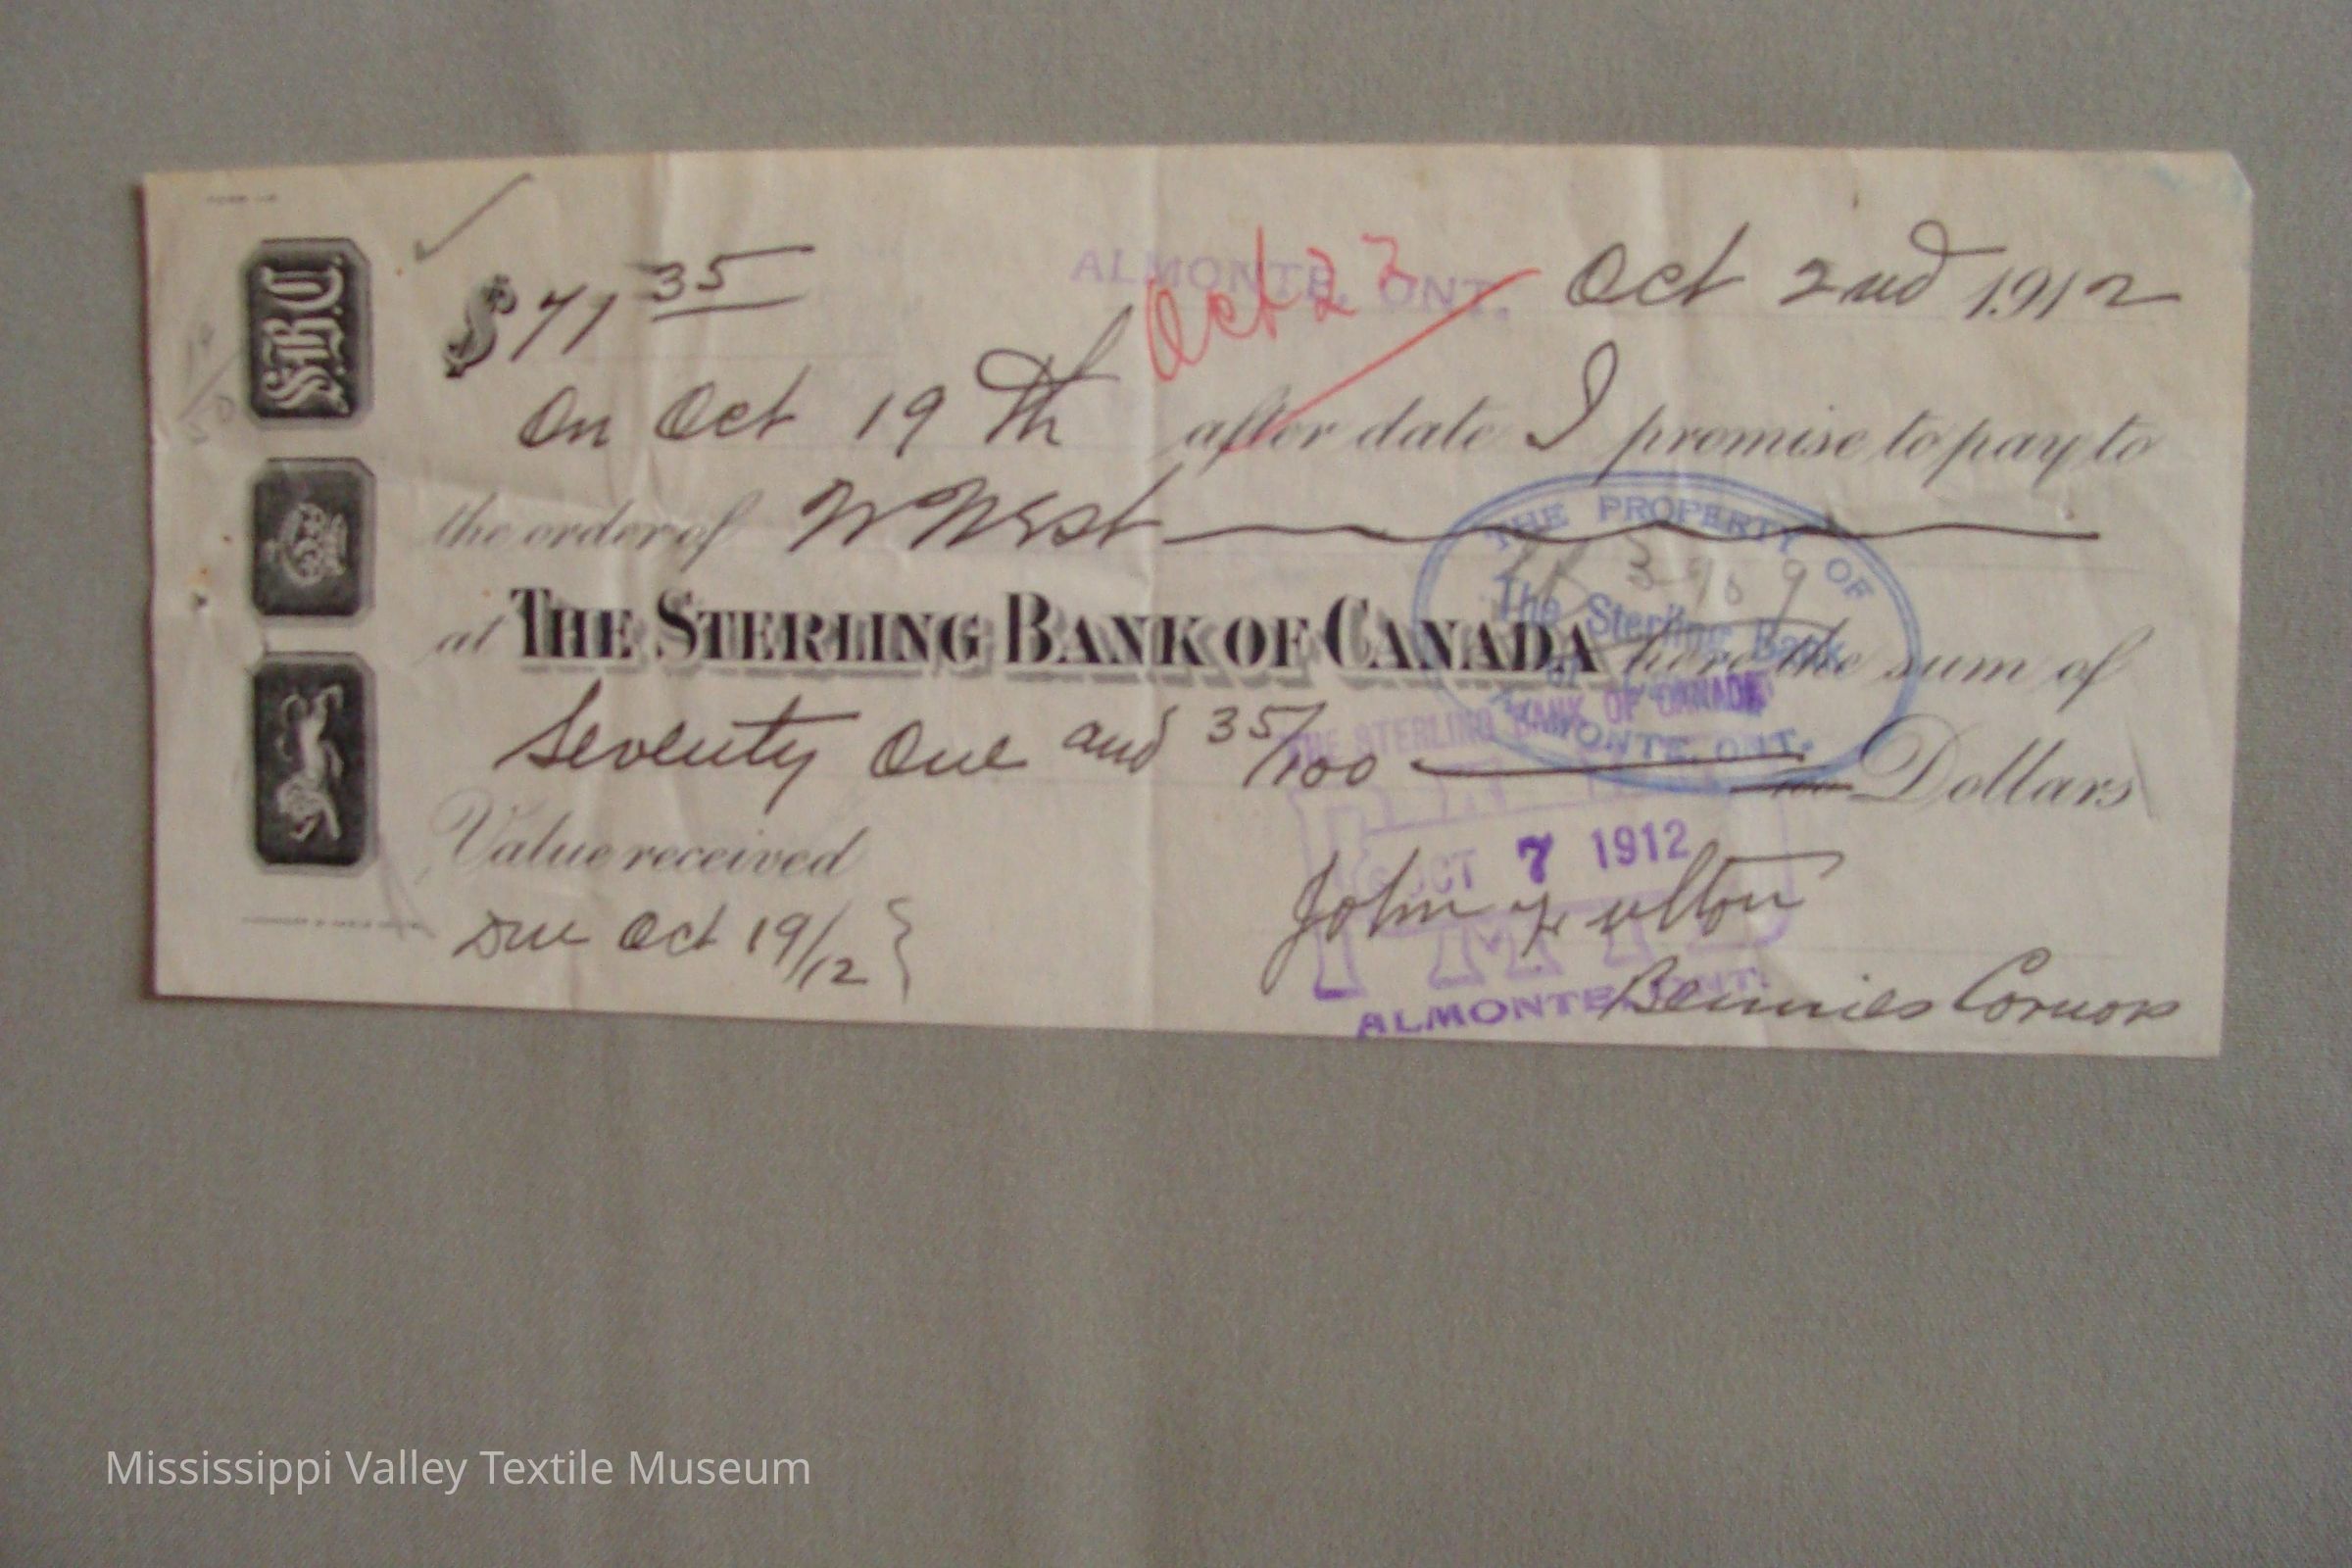 S.B.C.
$71 35
ALMONTE, ONT.
Oct 22
Oct 2nd 1912
On Oct 19th after date I promise to pay to
the order of W West
at THE STERLING BANK OF CANADA here the sum of
THE PROPERTY OF
The Sterling Bank
ALMONTE, ONT.
Seventy One and 35/100 Dollars
THE STERLING BANK OF CANADA
Value received
OCT 7 1912
John Fulton
Due Oct 19/12
ALMONTE, ONT.
Bennies Cornors
Mississippi Valley Textile Museum